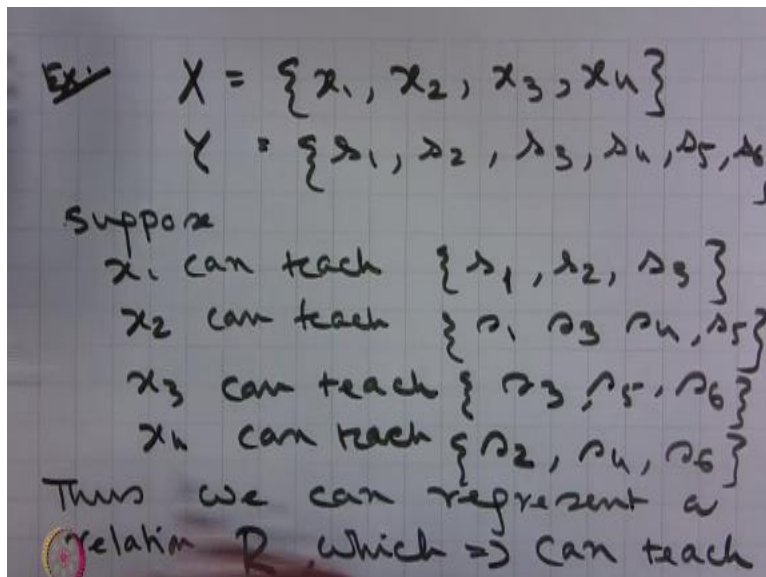 Ex. X = {x1, x2, x3, x4}
Y = {s1, s2, s3, s4, s5, s6
suppose
x1 can teach {s1, s2, s3}
x2 can teach {s1 s3 s4, s5}
x3 can teach {s3, s5, s6}
x4 can teach {s2, s4, s6}
Thus we can represent a
relation R which => can teach